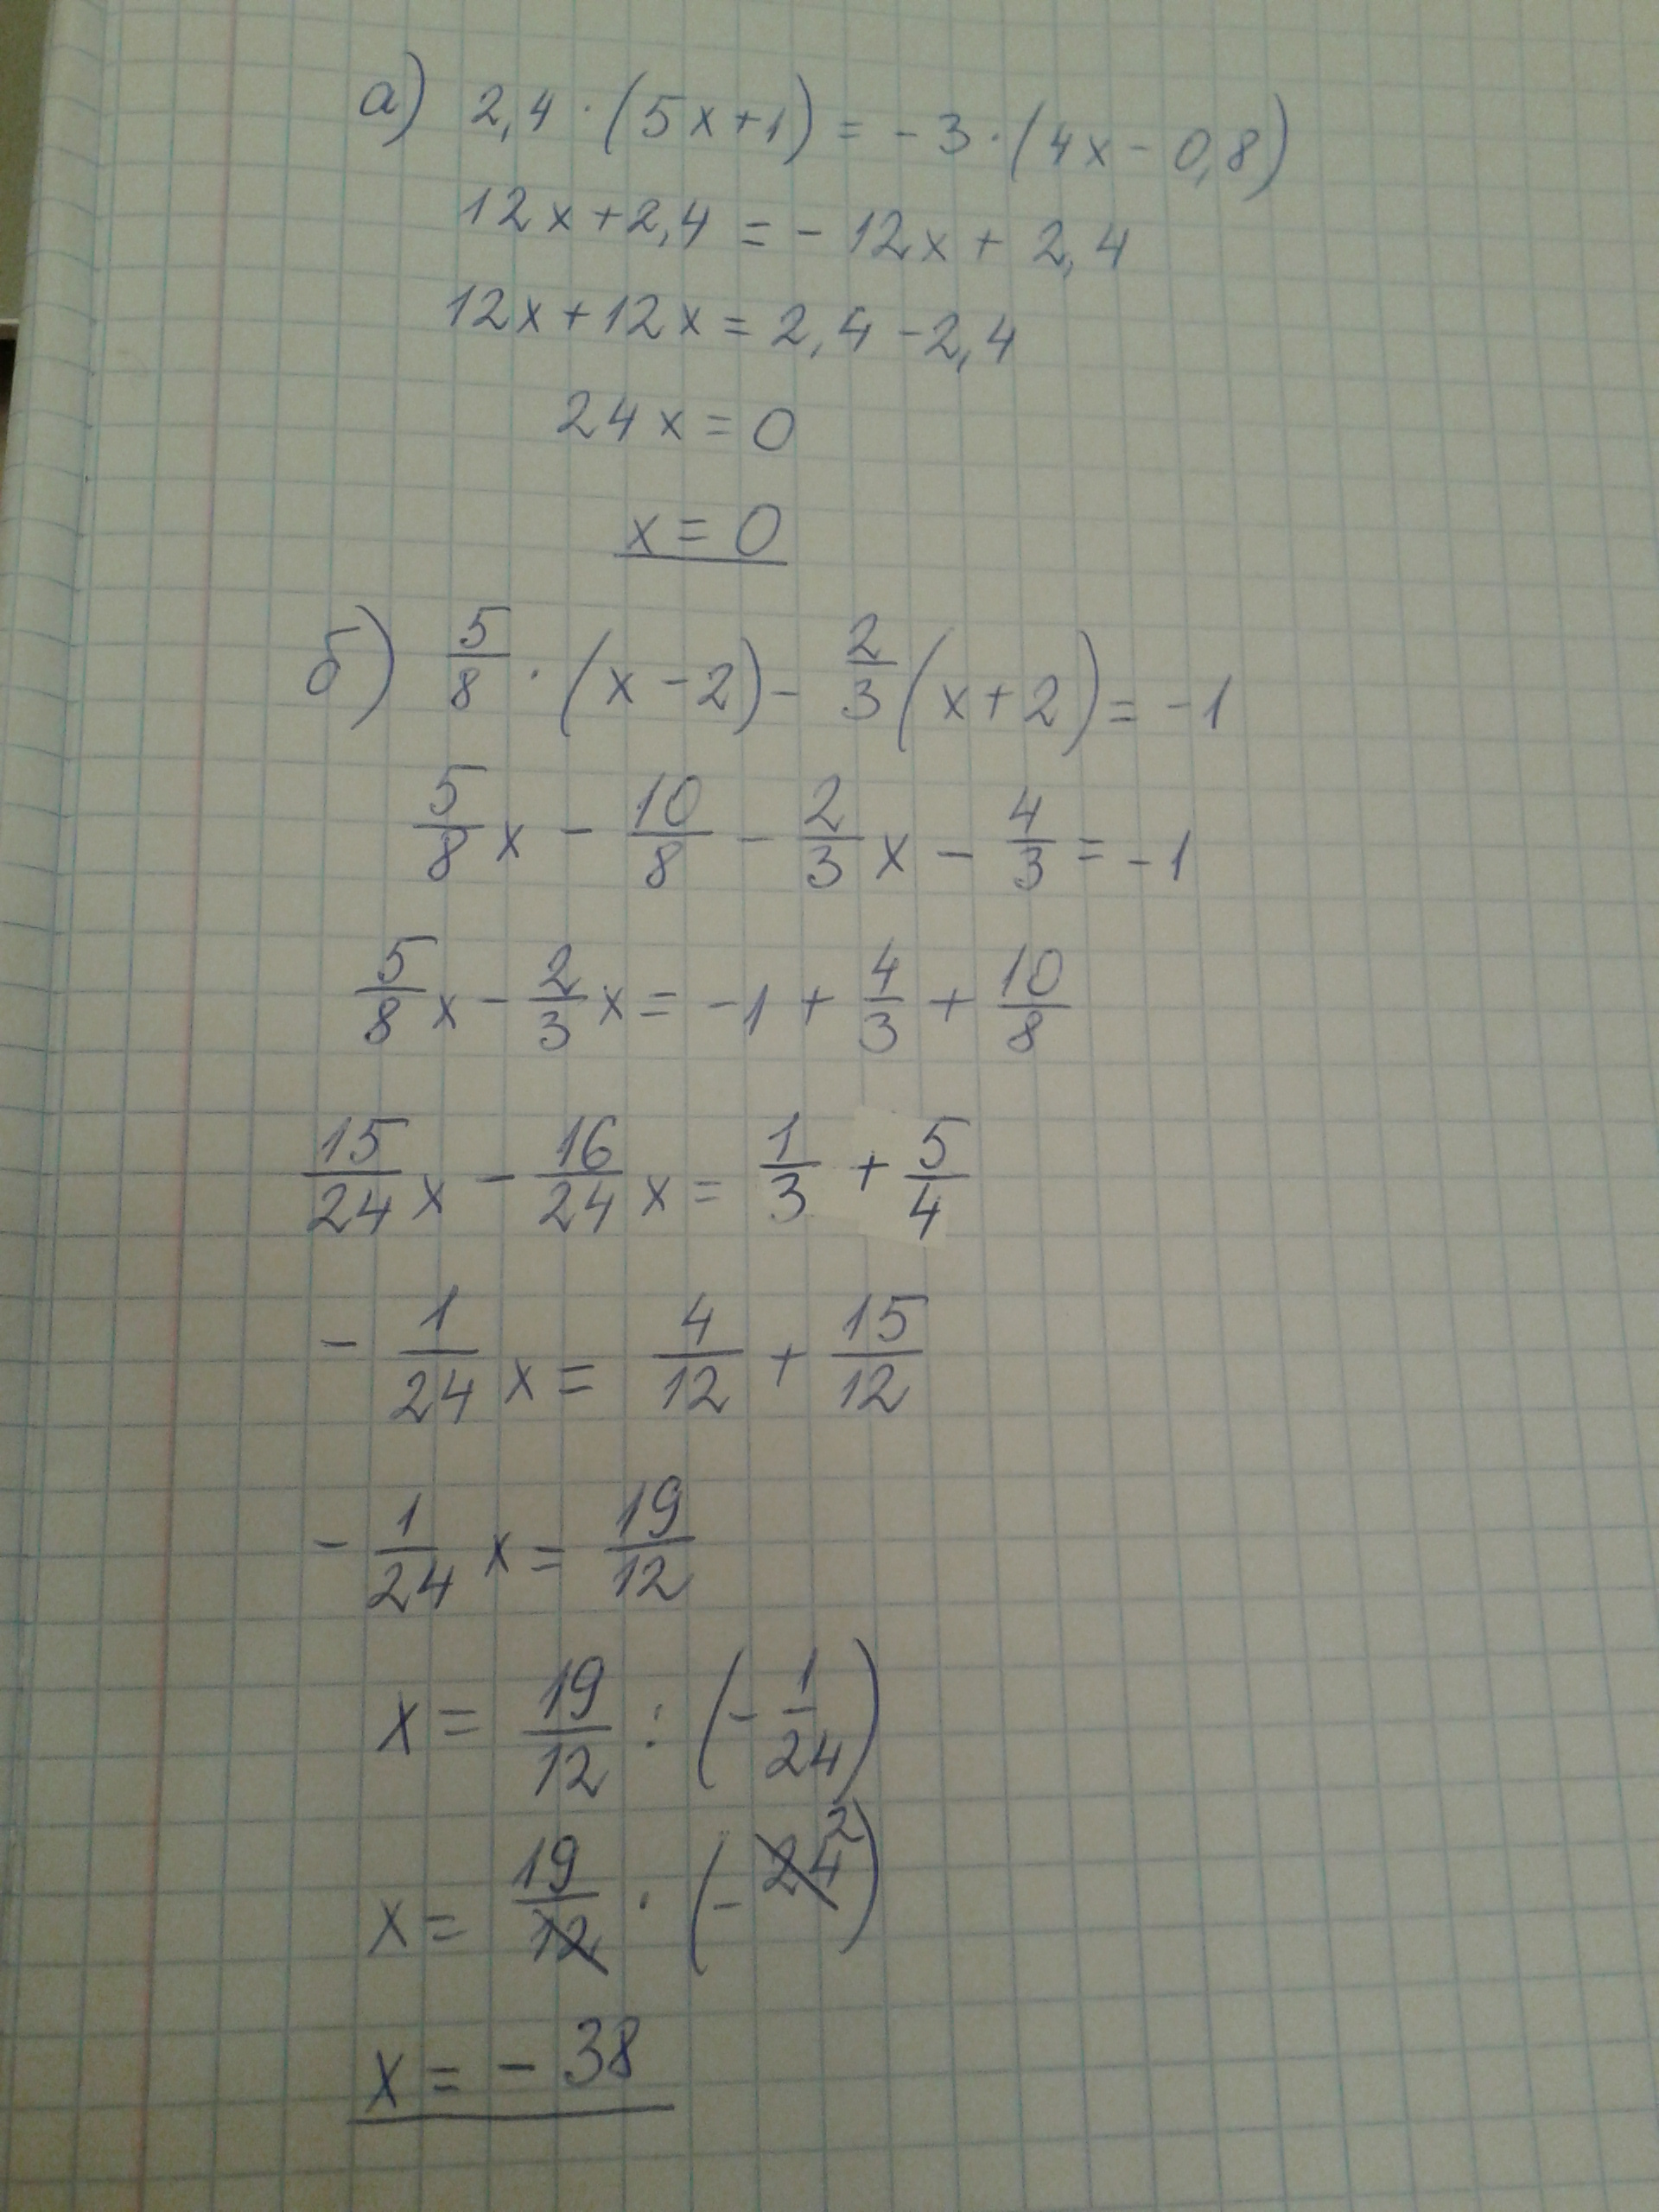 а) 2,4 · (5x+1) = -3 · (4x - 0,8)
12x + 2,4 = - 12x + 2,4
12x + 12x = 2,4 - 2,4
24x = 0
x = 0
б) 5/8 · (x - 2) - 2/3 (x + 2) = -1
5/8 x - 10/8 - 2/3 x - 4/3 = -1
5/8 x - 2/3 x = -1 + 4/3 + 10/8
15/24 x - 16/24 x = 1/3 + 5/4
- 1/24 x = 4/12 + 15/12
- 1/24 x = 19/12
x = 19/12 : (- 1/24)
x = 19/12 · (- 24 2)
x = - 38